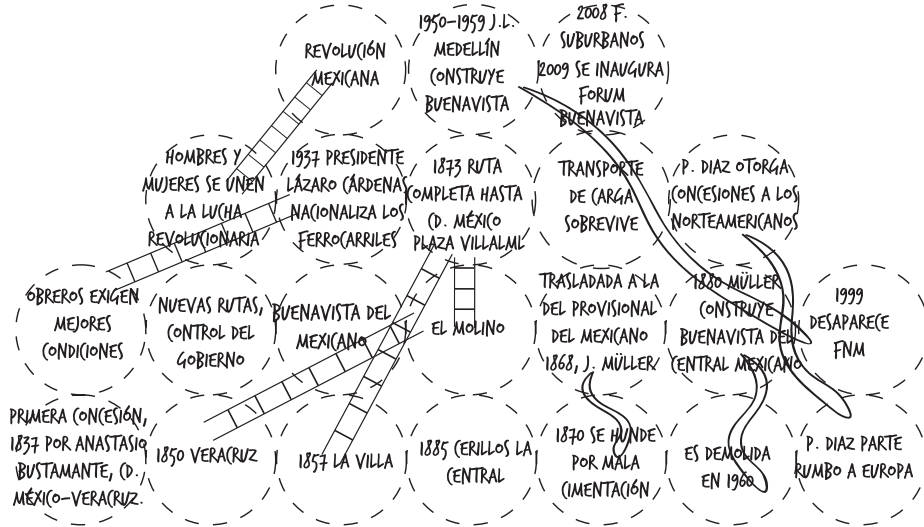 REVOLUCIÓN
MEXICANA
1950-1959 J.L.
MEDELLÍN
CONSTRUYE
BUENAVISTA
2008 F.
SUBURBANOS
2009 SE INAUGURA
FORUM
BUENAVISTA
HOMBRES Y
MUJERES SE UNEN
A LA LUCHA
REVOLUCIONARIA
1937 PRESIDENTE
LÁZARO CÁRDENAS
NACIONALIZA LOS
FERROCARRILES
1873 RUTA
COMPLETA HASTA
CD. MÉXICO
PLAZA VILLALML
TRANSPORTE
DE CARGA
SOBREVIVE
P. DIAZ OTORGA
CONCESIONES A LOS
NORTEAMERICANOS
OBREROS EXIGEN
MEJORES
CONDICIONES
NUEVAS RUTAS,
CONTROL DEL
GOBIERNO
BUENAVISTA DEL
MEXICANO
EL MOLINO
TRASLADADA A LA
DEL PROVISIONAL
DEL MEXICANO
1868, J. MÜLLER
1880 MÜLLER
CONSTRUYE
BUENAVISTA DEL
CENTRAL MEXICANO
1999
DESAPARECE
FNM
PRIMERA CONCESIÓN,
1837 POR ANASTASIO
BUSTAMANTE, CD.
MÉXICO-VERACRUZ.
1850 VERACRUZ
1857 LA VILLA
1885 CERILLOS LA
CENTRAL
1870 SE HUNDE
POR MALA
CIMENTACIÓN
ES DEMOLIDA
EN 1960
P. DIAZ PARTE
RUMBO A EUROPA